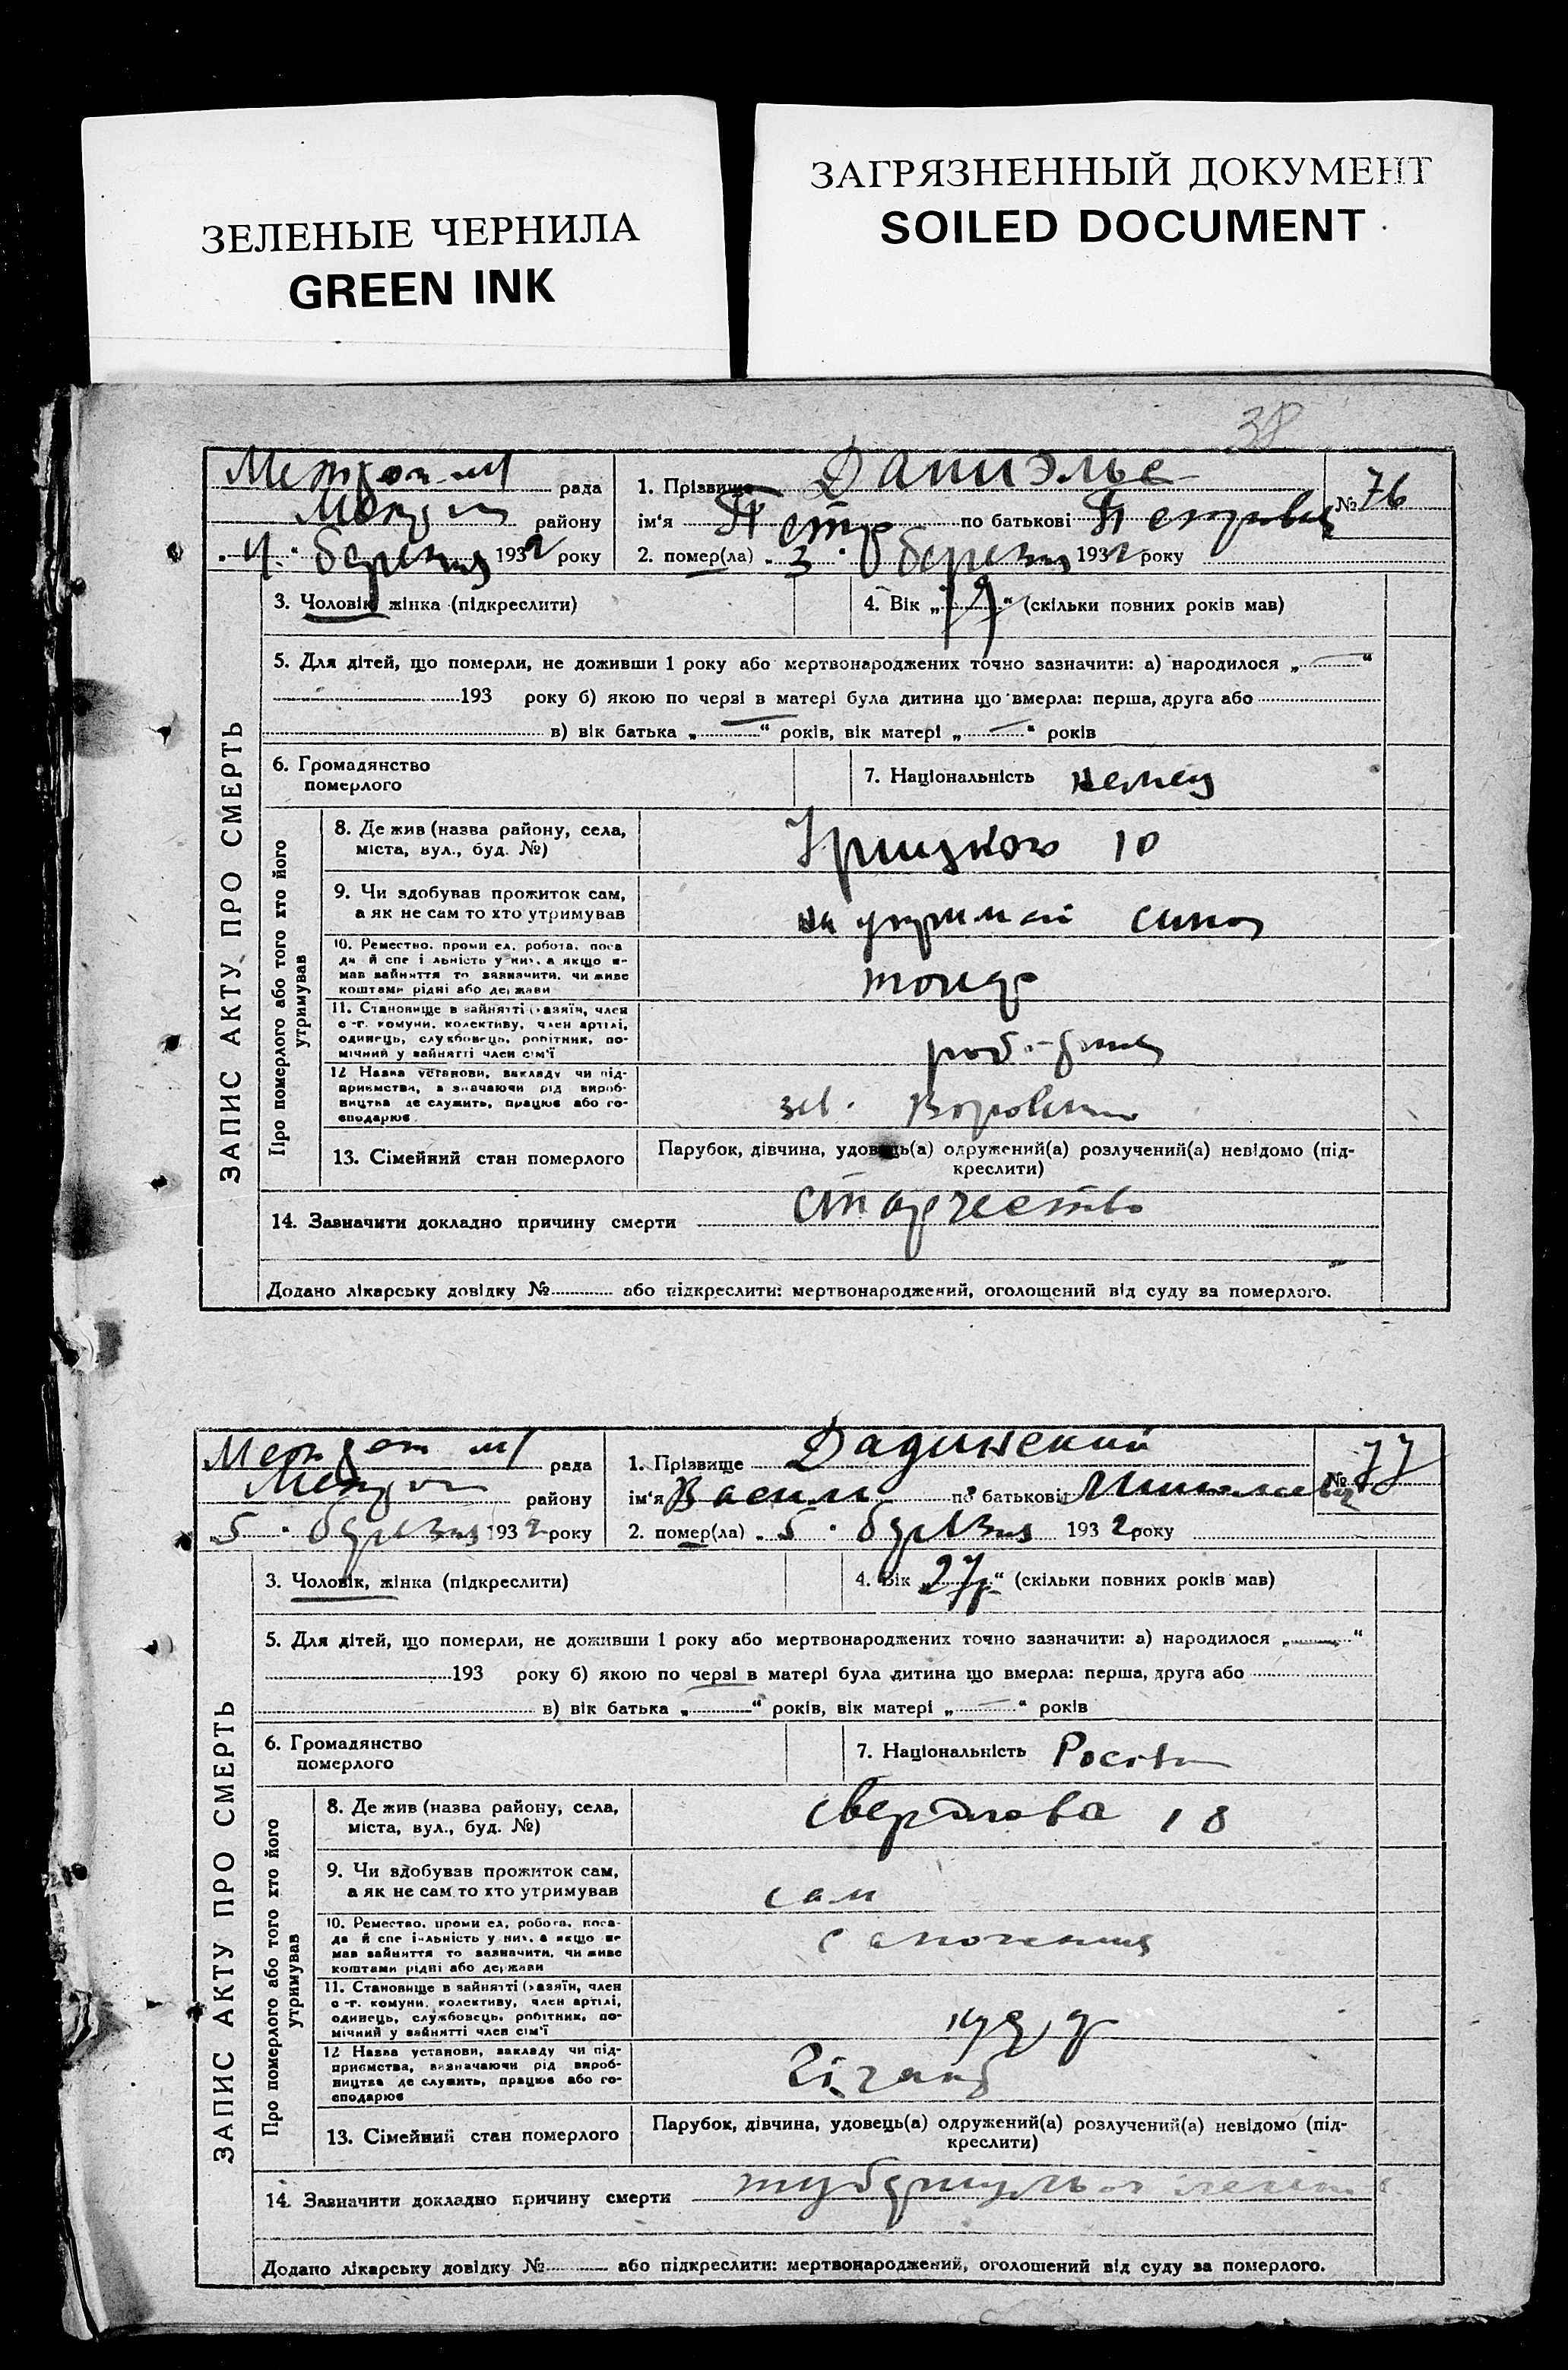 ЗЕЛЕНЫЕ ЧЕРНИЛА
GREEN INK
ЗАГРЯЗНЕННЫЙ ДОКУМЕНТ
SOILED DOCUMENT
38
рада
району
4 березня 1932 року
1. Прізвище Даниэльс
№ 76
ім'я Петр по батькові Петрович
2. помер(ла) 3 березня 1932 року
3. Чоловік, жінка (підкреслити)
4. Вік „ “ (скільки повних років мав)
5. Для дітей, що померли, не доживши 1 року або мертвонароджених точно зазначити: а) народилося „ “
193 року б) якою по черзі в матері була дитина що вмерла: перша, друга або
в) вік батька „ “ років, вік матері „ “ років
6. Громадянство
померлого
7. Національність немец
ЗАПИС АКТУ ПРО СМЕРТЬ
Про померлого або того хто його
утримував
8. Де жив (назва району, села,
міста, вул., буд. №)
Урицкого 10
9. Чи здобував прожиток сам,
а як не сам то хто утримував
на утриман сина
10. Ремество, проми ел, робота, поса
да й спе і льність у них, а якщо не
мав зайняття то зазначити, чи живе
коштами рідні або держави
11. Становище в зайнятті (хазяїн, член
с-г. комуни, колективу, член артілі,
одинець, службовець, робітник, по-
мічний у зайнятті член сім'ї
12 Назва установи, закладу чи під-
приємства, зазначаючи рід вироб-
ництва де служить, працює або го-
сподарює
13. Сімейний стан померлого
Парубок, дівчина, удовець(а) одружений(а) розлучений(а) невідомо (під-
креслити)
14. Зазначити докладно причину смерти старчество
Додано лікарську довідку № або підкреслити: мертвонароджений, оголошений від суду за померлого.
рада
району
5 березня 1932 року
1. Прізвище Дадинский
№ 77
ім'я Васили по батькові
2. помер(ла) 5 березня 1932 року
3. Чоловік, жінка (підкреслити)
4. Вік „27р“ (скільки повних років мав)
5. Для дітей, що померли, не доживши 1 року або мертвонароджених точно зазначити: а) народилося „ “
193 року б) якою по черзі в матері була дитина що вмерла: перша, друга або
в) вік батька „ “ років, вік матері „ “ років
6. Громадянство
померлого
7. Національність
ЗАПИС АКТУ ПРО СМЕРТЬ
Про померлого або того хто його
утримував
8. Де жив (назва району, села,
міста, вул., буд. №)
Свердлова 18
9. Чи здобував прожиток сам,
а як не сам то хто утримував
сам
10. Ремество, проми ел, робота, поса-
да й спе і-льність у них, а якщо не
мав зайняття то зазначити, чи живе
коштами рідні або держави
11. Становище в зайнятті (хазяїн, член
с-г. комуни, колективу, член артілі,
одинець, службовець, робітник, по-
мічний у зайнятті член сім'ї
12 Назва установи, закладу чи під-
приємства, зазначаючи рід вироб-
ництва де служить, працює або го-
сподарює
13. Сімейний стан померлого
Парубок, дівчина, удовець(а) одружений(а) розлучений(а) невідомо (під-
креслити)
14. Зазначити докладно причину смерти
Додано лікарську довідку № або підкреслити: мертвонароджений, оголошений від суду за померлого.